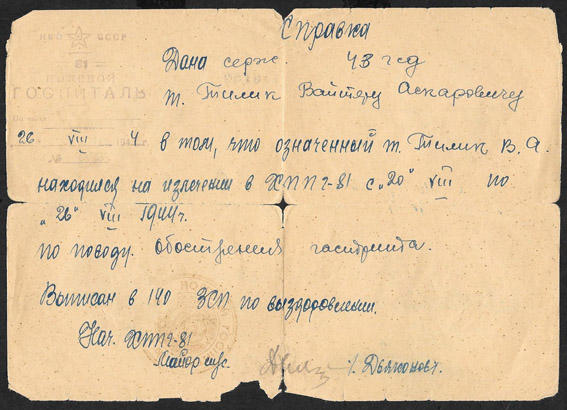 Справка
НКО СССР
81
ПОЛЕВОЙ
ГОСПИТАЛЬ
Дана серж. 43 гсд
т. Тилик Вайтеру Аскаровичу
26 VIII 4 в том, что означенный т. Тилик В. А.
№
находился на излечении в ХППГ-81 с "20" VIII по
"26" VIII 1944г.
по поводу обострения гастрита.
Выписан в 140 ЗСП по выздоровлении.
Нач. ХППГ-81
Майор м/с. /. Дьяконов.